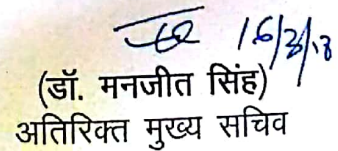 16/3/18
(डॉ. मनजीत सिंह)
अतिरिक्त मुख्य सचिव